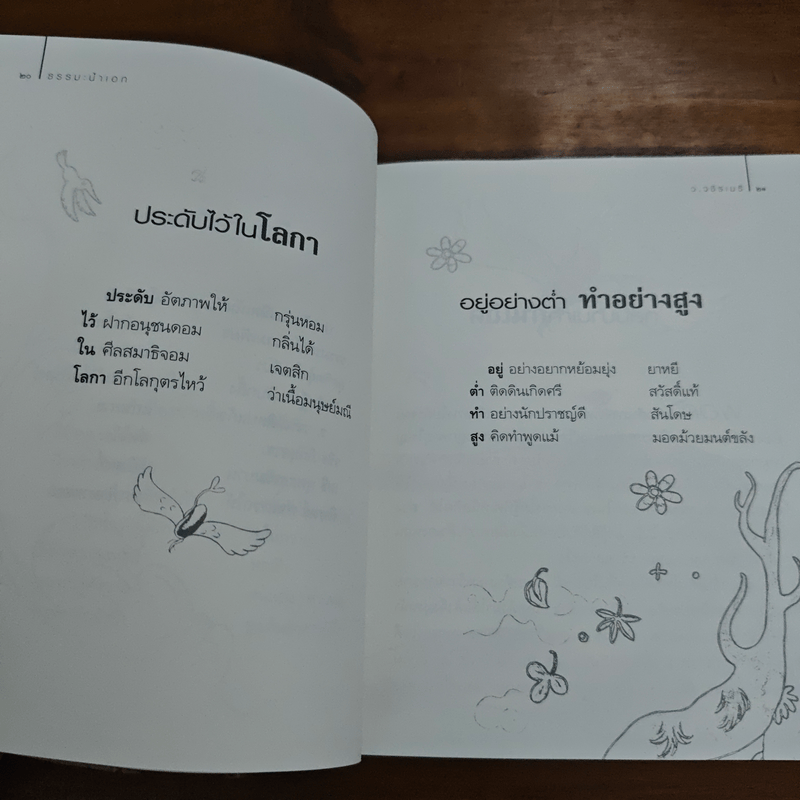 ๒๐ ธรรมะนำเอก
ประดับไว้ในโลกา
ประดับ อัตภาพให้ กรุ่นหอม
ไว้ ฝากอนุชนดอม กลิ่นได้
ใน ศีลสมาธิจอม เจตสิก
โลกา อีกโลกุตรไหว้ ว่าเนื้อมนุษย์มณี
ว.วชิรเมธี ๒๑
อยู่อย่างต่ำ ทำอย่างสูง
อยู่ อย่างอยากหย้อมยุ่ง ยาหยี
ต่ำ ติดดินเกิดศรี สวัสดิ์แท้
ทำ อย่างนักปราชญ์ดี สันโดษ
สูง คิดทำพูดแม้ มอดม้วยมนต์ขลัง